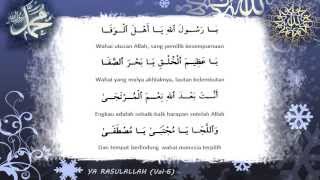 يَا رَسُوْلَ اللهِ يَا أَهْلَ الْوَفَا
Wahai utusan Allah, sang pemilik kesempurnaan
يَا عَظِيْمَ الْخُلُقِ يَا بَحْرَ الصَّفَا
Wahai yang mulya akhlaknya, lautan kelembutan
أَنْتَ بَعْدَ اللهِ نِعْمَ الْمُرْتَجَى
Engkau adalah sebaik-baik harapan setelah Allah
وَاللَّجَا يَا مُجْتَبَى يَا مُصْطَفَى
Dan tempat berlindung, wahai manusia terpilih
YA RASULALLAH (Vol-6)